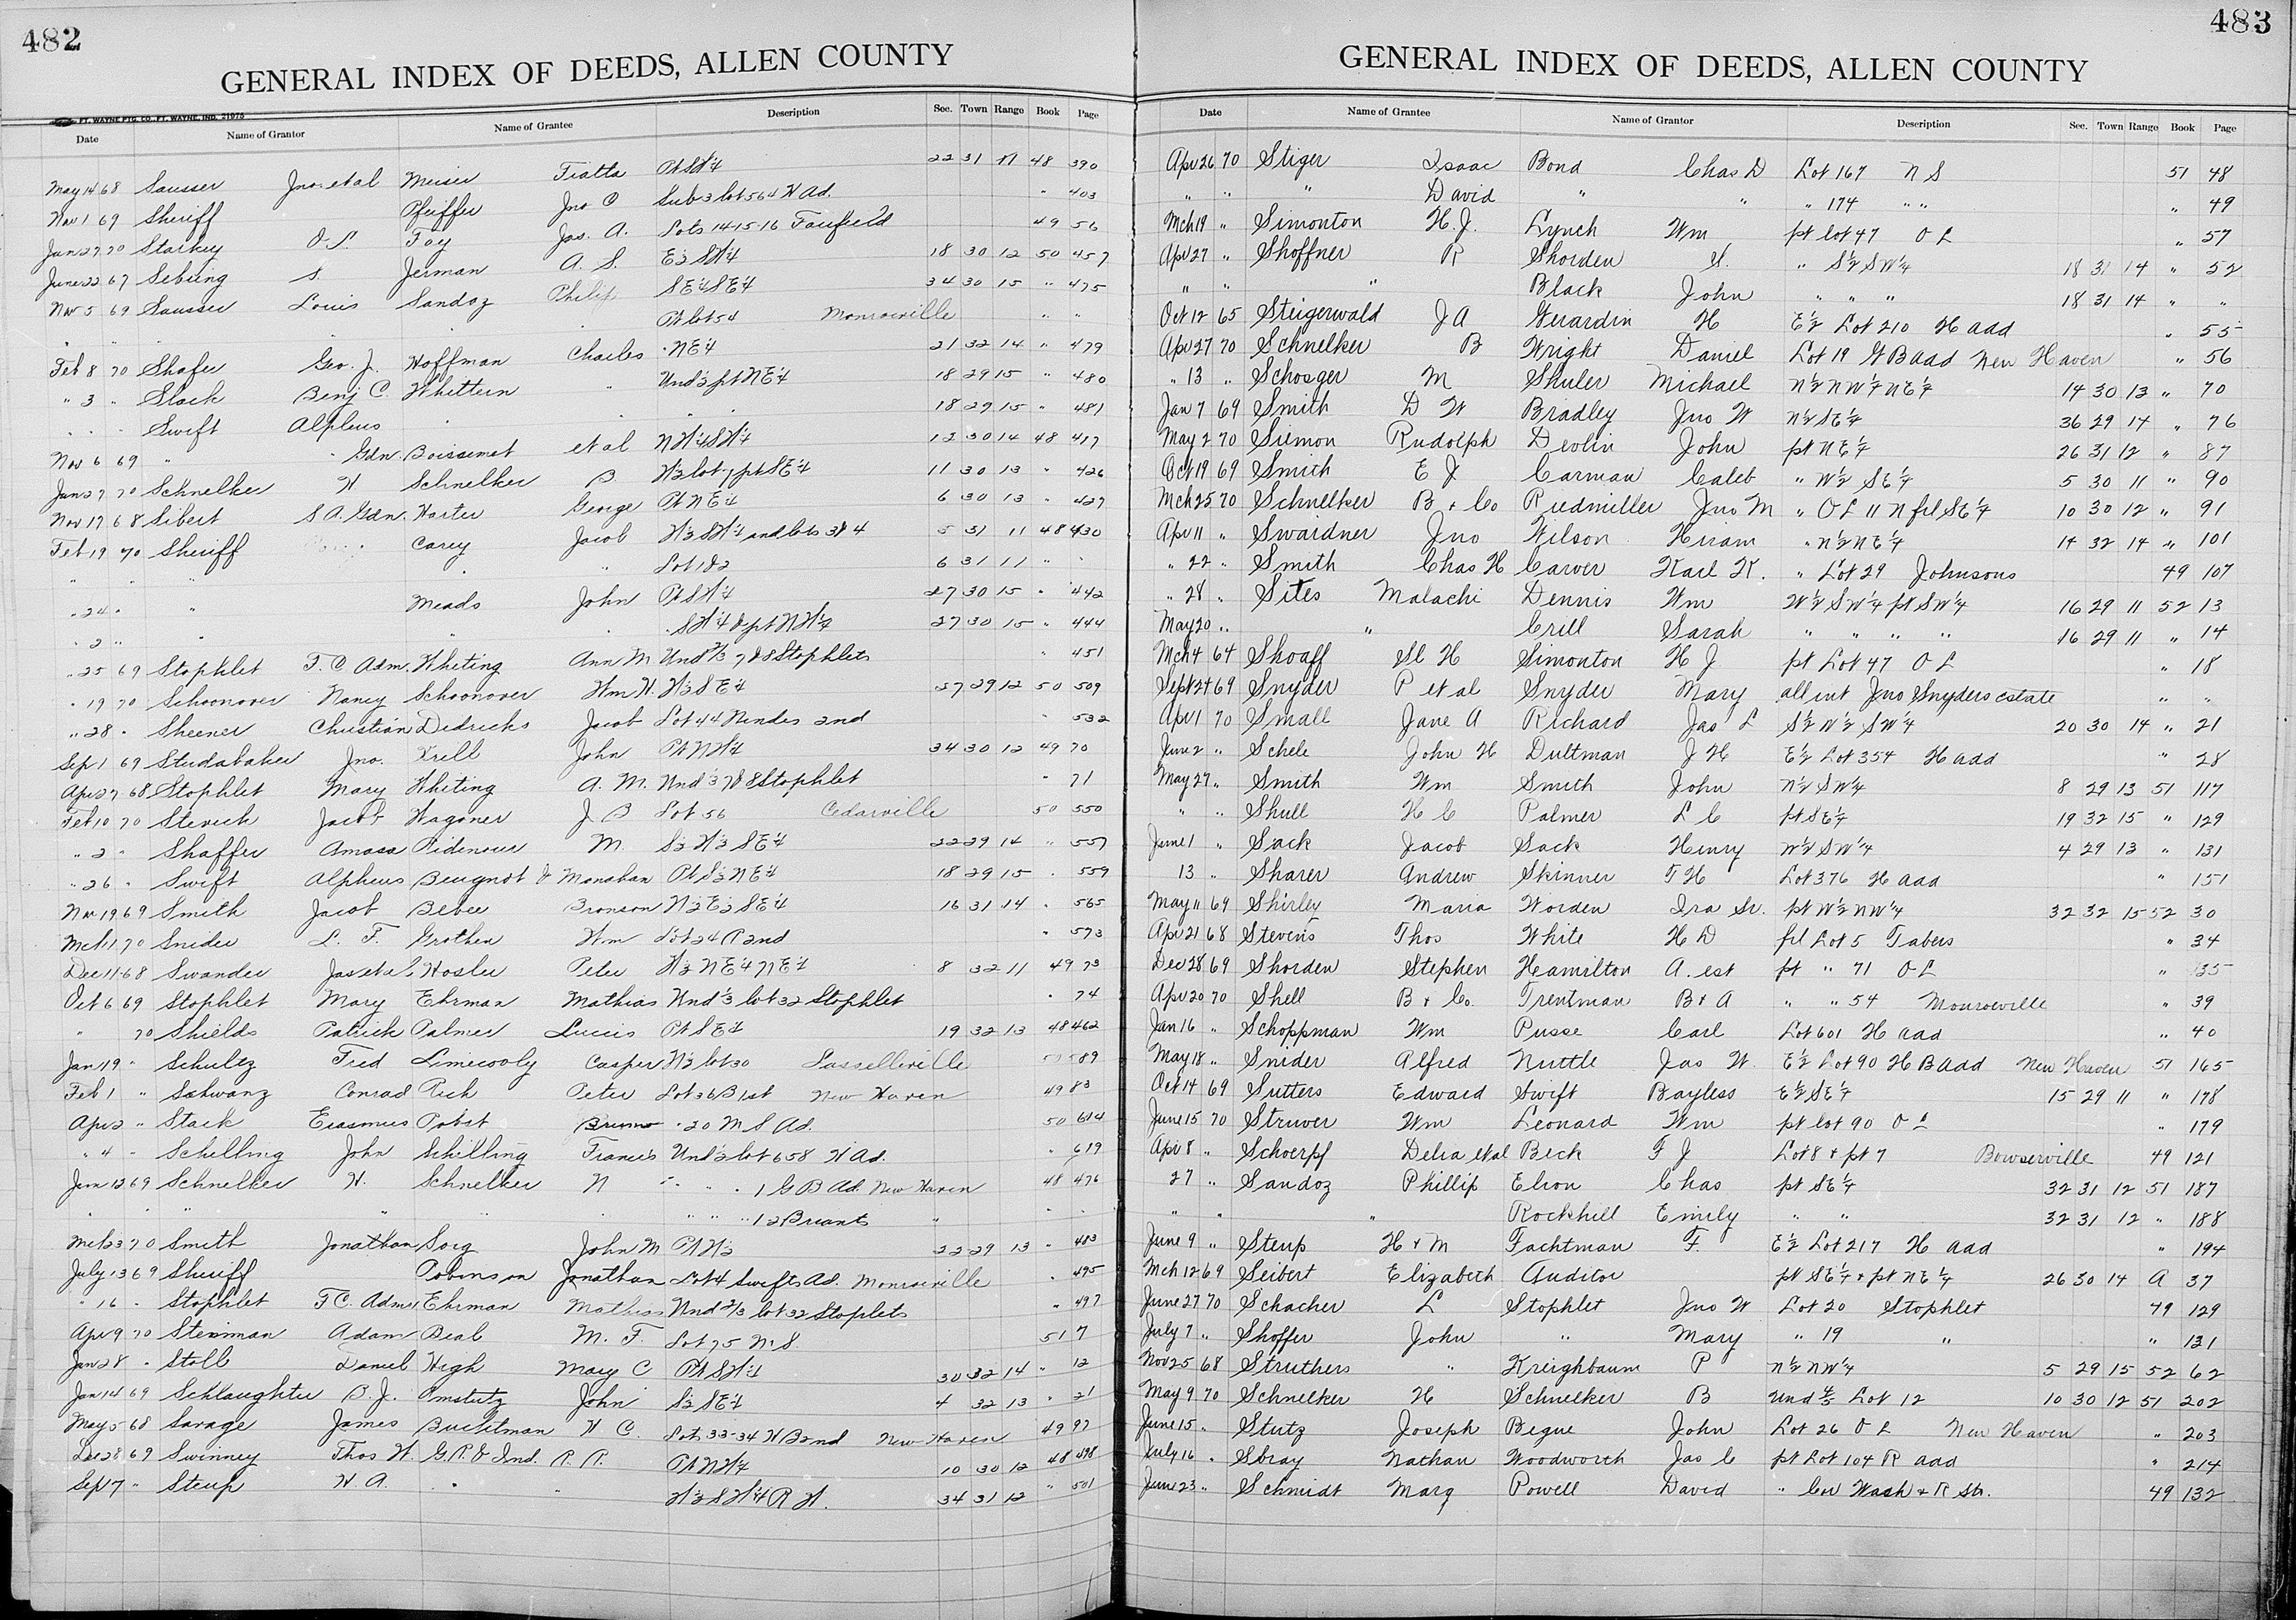 482
GENERAL INDEX OF DEEDS, ALLEN COUNTY
FT. WAYNE PTG. CO., FT. WAYNE, IND. 21975
Date Name of Grantor Name of Grantee Description Sec. Town Range Book Page
May 14 68 Sausser Jno. et al Meiser Fiatta Pt SW¼ 22 31 11 48 390
Nov 1 69 Sheriff Pfeiffer Jno C Sub 3 lot 564 H Ad. " 403
Jan 27 70 Starkey O. S. Foy Jas. A. Lots 14 15-16 Fairfield 49 56
June 22 67 Sebring S. Jerman A. S. E½ SW¼ 18 30 12 50 457
Nov 5 69 Sausser Louis Sandoz Philip SE¼ SE¼ 34 30 15 " 475
" " " Pt lot 54 Monroeville " "
Feb 8 70 Shafer Geo. J. Hoffman Charles NE¼ 21 32 14 " 479
" 3 " Slack Benj C. Whittern " Und½ pt NE¼ 18 29 15 " 480
" " " Swift Alpheus " " " " 18 29 15 " 481
Nov 6 69 " " Gdn. Boissenet et al NW¼ SW¼ 12 30 14 48 417
Jan 27 70 Schnelker H Schnelker B. W½ lot 7 pt SE¼ 11 30 13 " 426
Nov 17 68 Sibert S A. Gdn. Harter George Pt NE¼ 6 30 13 " 427
Feb 19 70 Sheriff Carey Jacob W½ SW¼ and lots 3 & 4 5 31 11 48 430
" " " " " Lot 1 & 2 6 31 11 " "
" 24 " " Meads John Pt SW¼ 27 30 15 " 442
" 2 " " " " SW¼ & pt NW¼ 27 30 15 " 444
" 25 69 Stophlet F. C. Adm. Whiting Ann M. Und ⅔ 7 & 8 Stophlets " 451
" 19 70 Schoonover Nancy Schoonover Wm H. W½ SE¼ 27 29 12 50 509
" 28 " Sheener Christian Didricks Jacob Lot 44 Nindes 2nd " 532
Sep 1 69 Studabaker Jno. Krill John Pt NW¼ 34 30 12 49 70
Apr 27 68 Stophlet Mary Whiting A. M. Und ⅓ 7 & 8 Stophlet " 71
Feb 10 70 Stevick Jacob Wagoner J B Lot 56 Cedarville 50 550
" 2 " Shaffer Amasa Ridenour M. S½ W½ SE¼ 22 29 14 " 557
" 26 " Swift Alpheus Beugnot & Monahan Pt S½ NE¼ 18 29 15 " 559
Nov 19 69 Smith Jacob Bebee Bronson W½ E½ SE¼ 16 31 14 " 565
Mch 1 70 Snider L. F. Grothen Wm Lot 24 R 2nd " 573
Dec 11 68 Swander Jas et al. Hosler Peter W½ NE¼ NE¼ 8 32 11 49 73
Oct 6 69 Stophlet Mary Ehrman Mathias Und ⅓ lot 32 Stophlet " 74
" 70 Shields Patrick Palmer Lucius Pt SE¼ 19 32 13 48 462
Jan 19 " Schultz Fred Limecooly Casper W½ lot 30 Lassellville 50 589
Feb 1 " Schwanz Conrad Rich Peter Lot 36 B 1st New Haven 49 83
Apr 2 " Stack Erasmus Pobst Bruno " 20 M S Ad. 50 614
" 4 " Schilling John Schilling Francis Und½ lot 658 H Ad. " 619
Jan 12 69 Schnelker H. Schnelker N " " " 1 G B Ad. New Haven 48 476
" " " " " " " " 12 Briants " " "
Mch 23 70 Smith Jonathan Sorg John M Pt W½ 22 29 13 " 483
July 13 69 Sheriff Robinson Jonathan Lot 4 Swifts Ad. Monroeville " 495
" 16 " Stophlet F C. Adm. Ehrman Mathias Und ⅔ lot 32 Stoplets " 497
Apr 9 70 Steinman Adam Beal M. F. Lot 75 M. S. 51 7
Jan 28 " Stoll Daniel High Mary C Pt SW¼ 30 32 14 " 12
Jan 14 69 Schlaughter B. J. Amstutz John S½ SE¼ 4 32 13 " 21
May 5 68 Savage James Buchtman H C. Lot 33-34 H B 2nd New Haven 49 97
Dec 28 69 Swinney Thos W. G. R. & Ind. R. R. Pt NW¼ 10 30 12 48 498
Sep 7 " Steup H. A. " " W½ SW¼ R. W. 34 31 12 " 501
483
GENERAL INDEX OF DEEDS, ALLEN COUNTY
Date Name of Grantee Name of Grantor Description Sec. Town Range Book Page
Apr 26 70 Stiger Isaac Bond Chas D Lot 167 N S 51 48
" " " David " " " 174 " " " 49
Mch 19 " Simonton H. J. Lynch Wm pt lot 47 O L " 57
Apr 27 " Shoffner R Shorden S. " S½ SW¼ 18 31 14 " 52
" " " Black John " " " 18 31 14 " "
Oct 12 65 Steigerwald J A Girardin H E½ Lot 210 H add " 55
Apr 27 70 Schnelker B Wright Daniel Lot 19 G B add New Haven " 56
" 13 " Schosger M Shuler Michael N½ NW¼ NE¼ 14 30 13 " 70
Jan 7 69 Smith D W Bradley Jno W N½ SE¼ 36 29 14 " 76
May 2 70 Siemon Rudolph Devlin John pt NE¼ 26 31 12 " 87
Oct 19 69 Smith E J Carman Caleb " W½ SE¼ 5 30 11 " 90
Mch 25 70 Schnelker B & Co Riedmiller Jno M " O L 11 N frl SE¼ 10 30 12 " 91
Apr 11 " Swaidner Jno Wilson Hiram " N½ NE¼ 14 32 14 " 101
" 22 " Smith Chas H Carver Karl K. " Lot 29 Johnsons 49 107
" 28 " Sites Malachi Dennis Wm W½ SW¼ pt SW¼ 16 29 11 52 13
May 20 " " Crill Sarah " " " " 16 29 11 " 14
Mch 4 64 Shoaff Sl H Simonton H J pt Lot 47 O L " 18
Sept 24 69 Snyder P et al Snyder Mary all int Jno Snyders estate " "
Apr 1 70 Small Jane A Richard Jas L S½ W½ SW¼ 20 30 14 " 21
June 2 " Schele John H Duttman J H E½ Lot 354 H add " 28
May 27 " Smith Wm Smith John N½ SW¼ 8 29 13 51 117
" " Shull H C Palmer L C pt SE¼ 19 32 15 " 129
June 1 " Sack Jacob Sack Henry W½ SW¼ 4 29 13 " 131
13 " Sharer Andrew Skinner T H Lot 376 H add " 151
May 11 69 Shirley Maria Worden Ira Sr. pt W½ NW¼ 32 32 15 52 30
Apr 21 68 Stevens Thos White H D frl Lot 5 Tabers " 34
Dec 28 69 Shorden Stephen Hamilton A. est pt " 71 O L " 35
Apr 20 70 Shell B & Co. Trentman B & A " " 54 Monroeville " 39
Jan 16 " Schoppman Wm Pusse Carl Lot 601 H add " 40
May 18 " Snider Alfred Nuttle Jas W. E½ Lot 90 H B Add New Haven 51 165
Oct 14 69 Sutters Edward Swift Bayless E½ SE¼ 15 29 11 " 178
June 15 70 Struver Wm Leonard Wm pt lot 90 O L " 179
Apr 8 " Schoerpf Delia et al Beck F J Lot 8 & pt 7 Bowserville 49 121
27 " Sandoz Phillip Elron Chas pt SE¼ 32 31 12 51 187
" " " Rockhill Emily " " 32 31 12 " 188
June 9 " Steup H & M Fachtman F. E½ Lot 217 H add " 194
Mch 12 69 Seibert Elizabeth Auditor pt SE¼ & pt NE¼ 26 30 14 A 37
June 27 70 Schacher L Stophlet Jno W Lot 20 Stophlet 49 129
July 7 " Shoffer John " Mary " 19 " " 131
Nov 25 68 Struthers " Kreighbaum P N½ NW¼ 5 29 15 52 62
May 9 70 Schnelker H Schnelker B Und Lot 12 10 30 12 51 202
June 15 " Stutz Joseph Begue John Lot 26 O L New Haven " 203
July 16 " Stray Nathan Woodworth Jas C pt Lot 104 R add " 214
June 23 " Schmidt Marg Powell David " Cor Wash & R Sts. 49 132